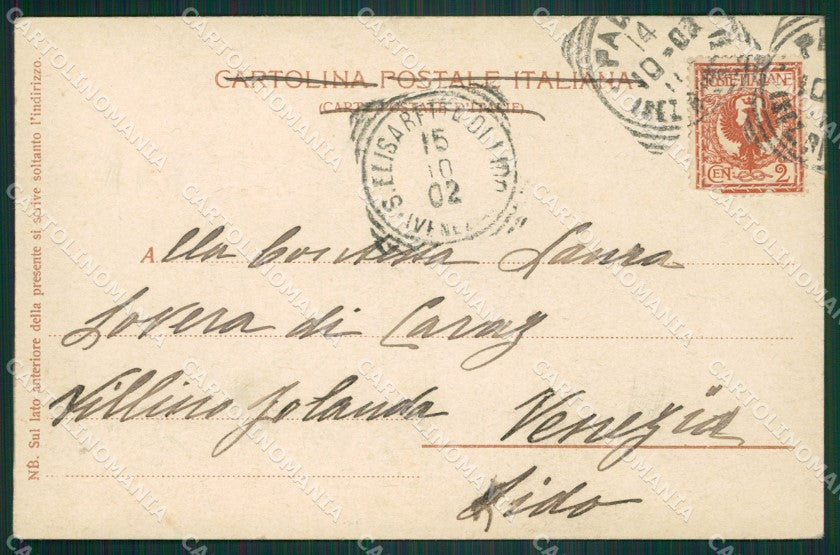 CARTOLINA POSTALE ITALIANA
(CARTE POSTALE D'ITALIE)
14
10-02
POSTE ITALIANE
CEN 2
S. ELISABETTA DI LIDO
15
10
02
(VENEZ
Alla Contessa Laura
Lovera di Caraz
Villino Jolanda Venezia
Lido
NB. Sul lato anteriore della presente si scrive soltanto l'indirizzo.
CARTOLINOMANIA